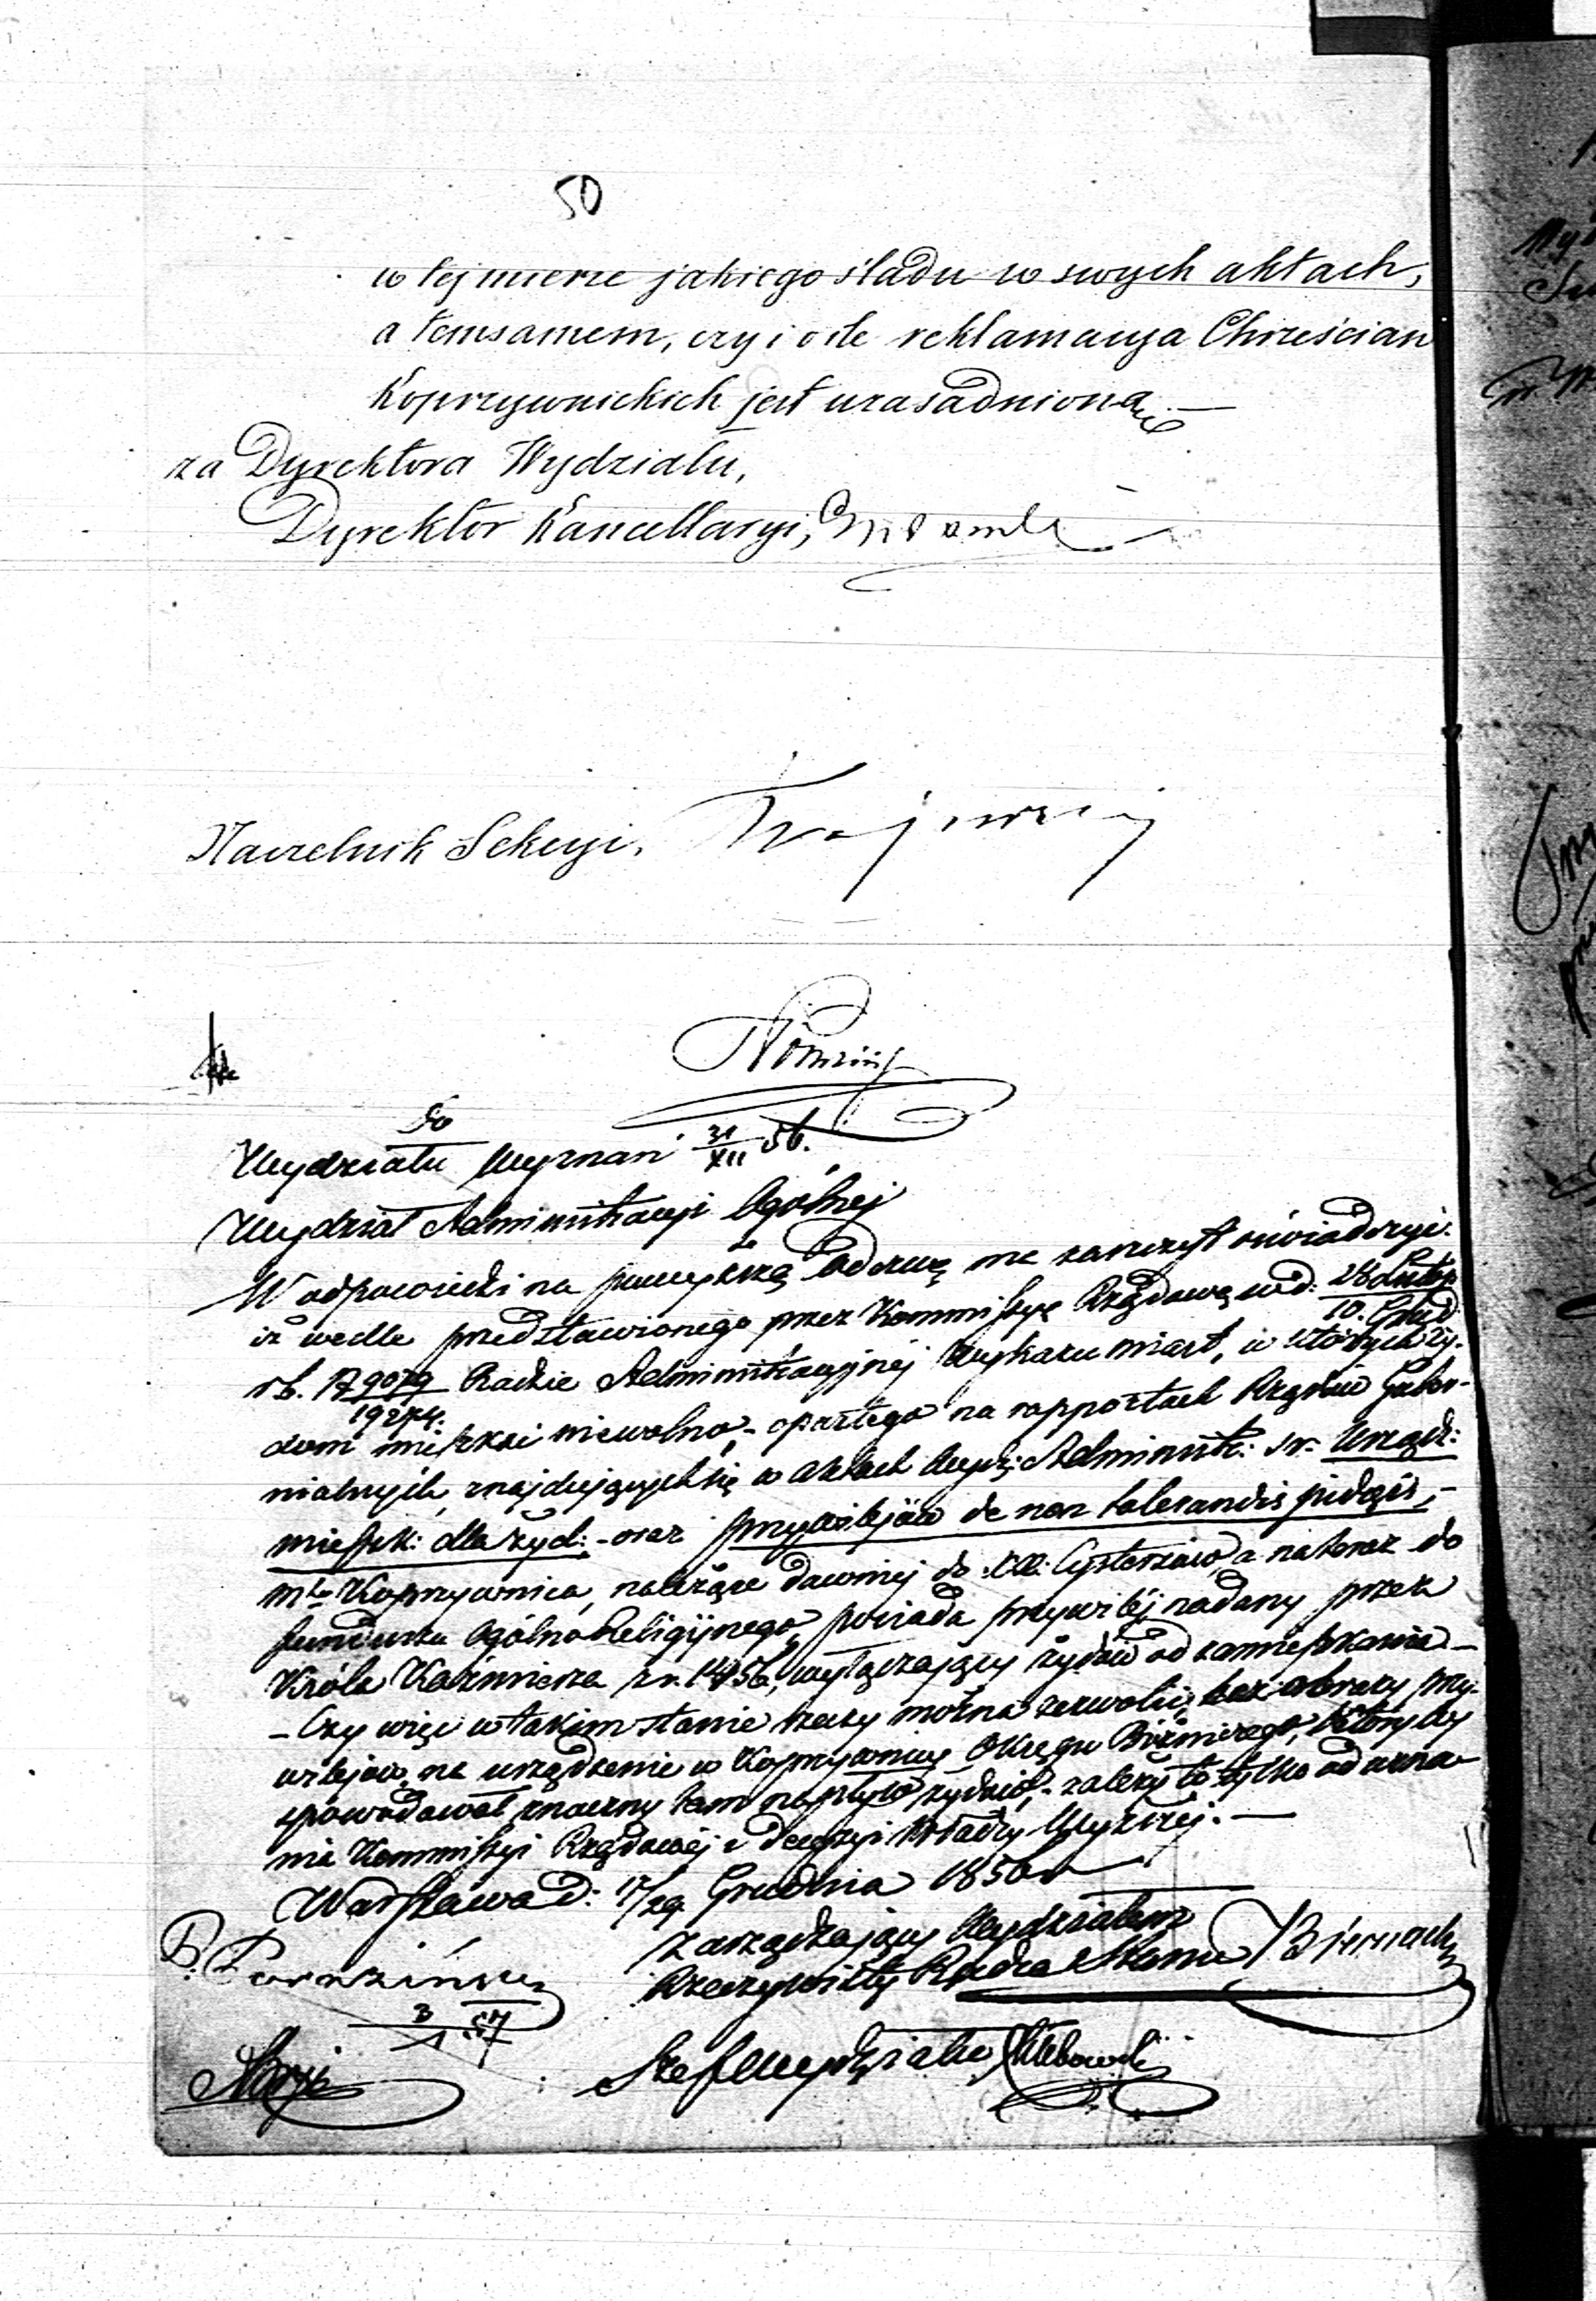 50
w tej mierze jakiego śladu w swych aktach,
a temsamem, czy i o ile reklamacya Chrześcian
Koprzywnickich jest uzasadnioną. —
za Dyrektora Wydziału,
Dyrektor Kancellaryi,
Naczelnik Sekcyi,
Do
Wydziału Wyznań 31/XII 56.
Wydział Administracyi Ogólnej
W odpowiedzi na powyższą Odezwę ma zaszczyt oświadczyć
iż wedle przedstawionego przez Kommissyę Rządową w d: 28 Lutego/10. Grud
r b. 17907/19274. Radzie Administracyjnej wykazu miast, w których ży-
dom mieszkać niewolno, - opartego na rapportach Rządów Guber-
nialnych, znajdujących się w aktach Wydz: Administr: sr. Urządz:
mieszk: dla żyd: - oraz przywilejów de non tolerandis judaeis, -
m<sup>to</sup> Koprzywnica, należące dawniej do XX. Cystersów a na teraz do
funduszu Ogólno Religijnego, posiada przywilej nadany przez
Króla Kaźmierza z r. 1456, wyłączający żydów od zamieszkania —
- Czy więc w takim stanie rzeczy można zezwolić, bez obrazy przy-
wilejów, na urządzenie w Koprzywnicy Okręgu Bóżniczego, któryby
spowodował znaczny tam napływ żydów, - zależy to tylko od uzna-
nia Kommissyi Rządowej i decyzyi Władzy Wyższej. —
Warszawa d: 17/29 Grudnia 1856 r
Zarządzający Wydziałem
Rzeczywisty Radca Stanu
3/1 57
Szef Wydziału